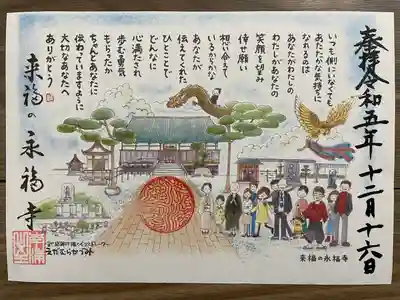 奉拝 令和五年十二月十六日
いつも側にいなくても
あたたかな気持ちに
なれるのは
あなたがわたしの
わたしがあなたの
笑顔を望み
倖せ願い
想い合えて
いるからかな
あなたが
伝えてくれた
ひとことで
どんなに
心満たされ
歩む勇気
もらったか
ちゃんとあなたに
伝わっていますように
大切なあなたへ
ありがとう
来福の永福寺
えだむらかづみ
来福の永福寺